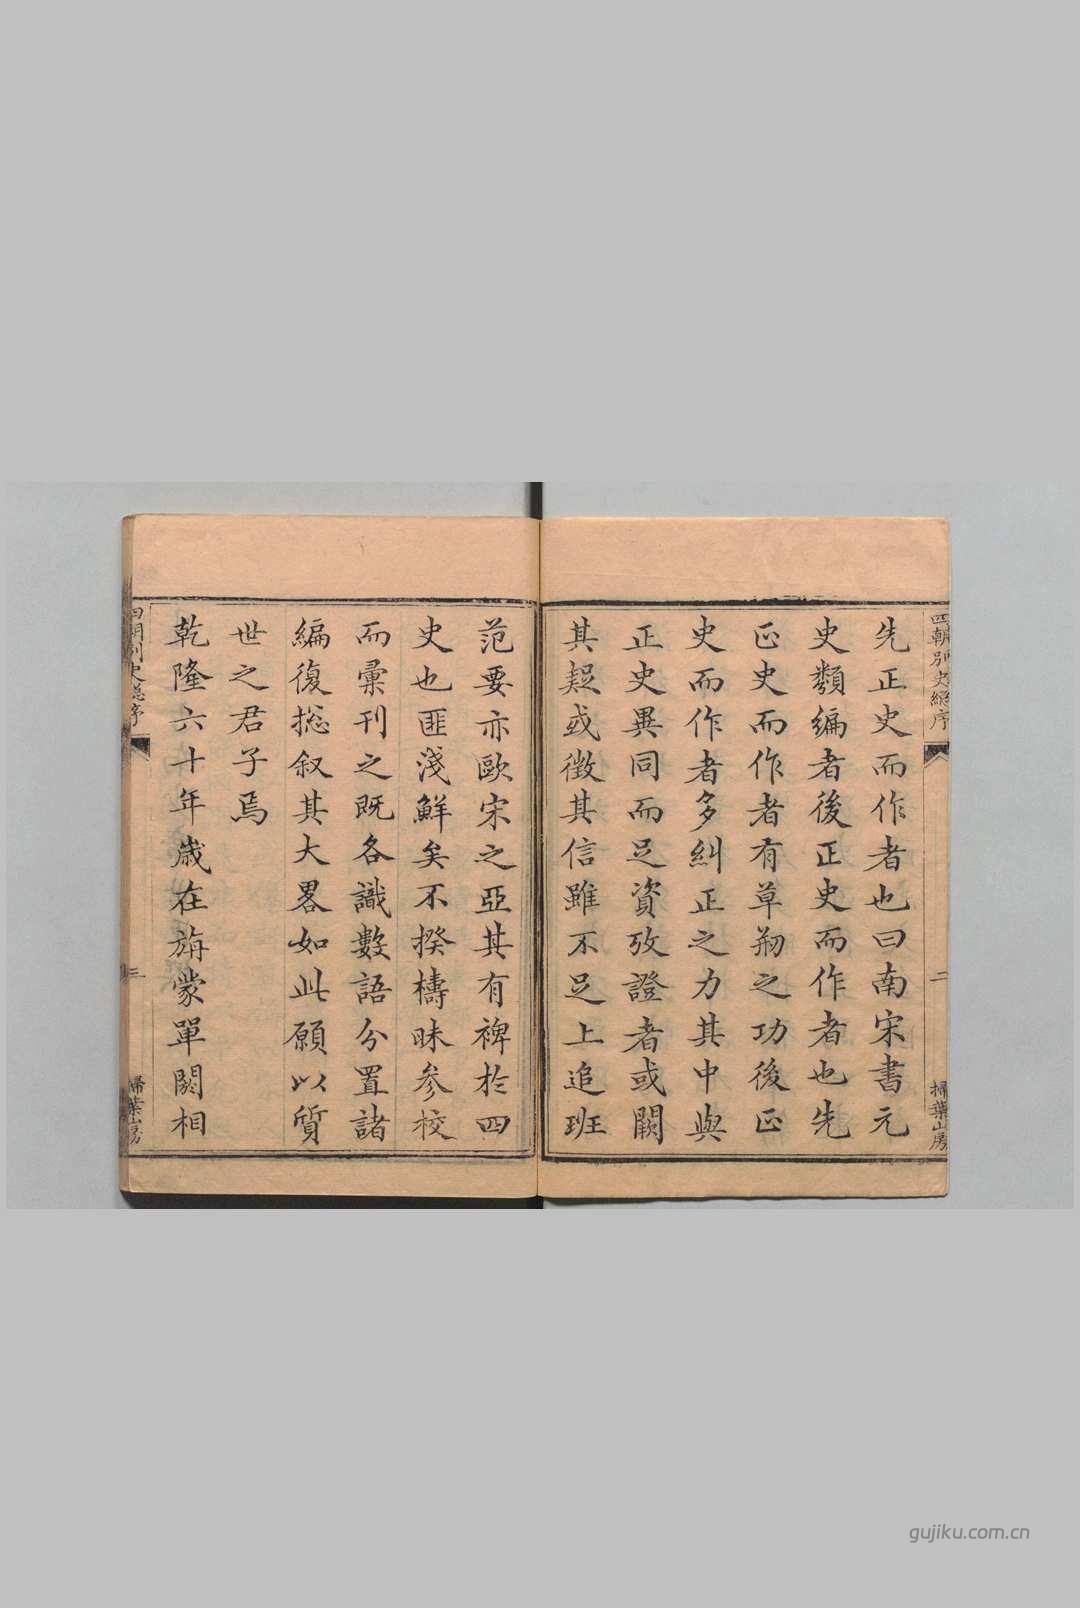 四朝別史總序
二
掃葉山房
先正史而作者也曰南宋書元
史類編者後正史而作者也先
正史而作者有草剏之功後正
史而作者多糾正之力其中與
正史異同而足資攷證者或闕
其疑或徵其信雖不足上追班
范要亦歐宋之亞其有裨於四
史也匪淺鮮矣不揆檮昧參校
而彙刊之既各識數語分置諸
編復揔叙其大畧如此願以質
世之君子焉
乾隆六十年歲在旃蒙單閼相
四朝別史總序
三
掃葉山房
gujiku.com.cn